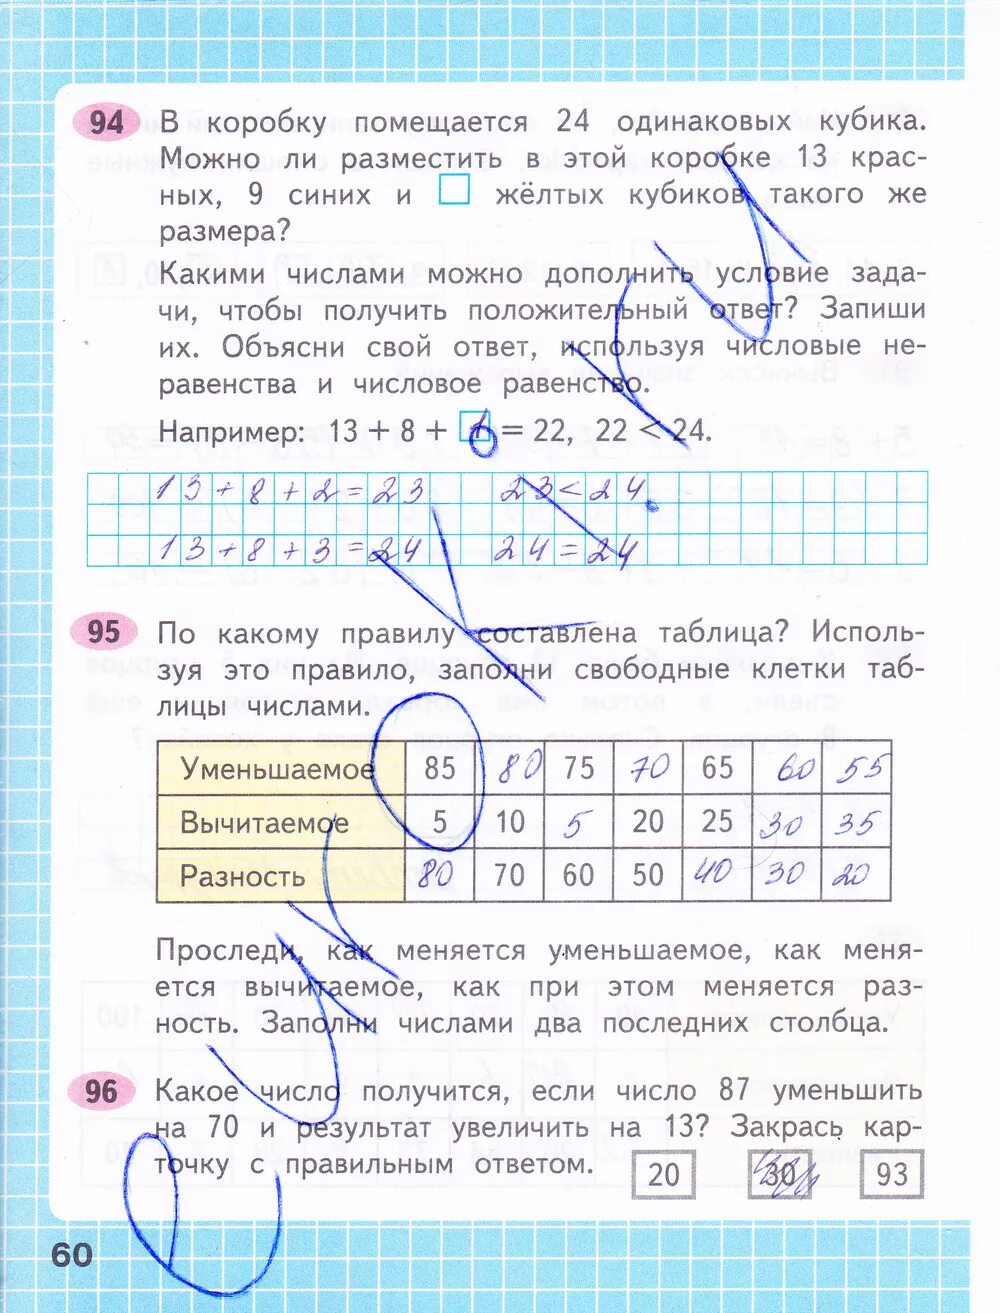 94 В коробку помещается 24 одинаковых кубика.
Можно ли разместить в этой коробке 13 крас-
ных, 9 синих и □ жёлтых кубиков такого же
размера?
Какими числами можно дополнить условие зада-
чи, чтобы получить положительный ответ? Запиши
их. Объясни свой ответ, используя числовые не-
равенства и числовое равенство.
Например: 13 + 8 + 1 = 22, 22 < 24.
13 + 8 + 2 = 23 23 < 24.
13 + 8 + 3 = 24 24 = 24
95 По какому правилу составлена таблица? Исполь-
зуя это правило, заполни свободные клетки таб-
лицы числами.
Уменьшаемое 85 80 75 70 65 60 55
Вычитаемое 5 10 5 20 25 30 35
Разность 80 70 60 50 40 30 20
Проследи, как меняется уменьшаемое, как меня-
ется вычитаемое, как при этом меняется раз-
ность. Заполни числами два последних столбца.
96 Какое число получится, если число 87 уменьшить
на 70 и результат увеличить на 13? Закрась кар-
точку с правильным ответом.
20 30 93
60